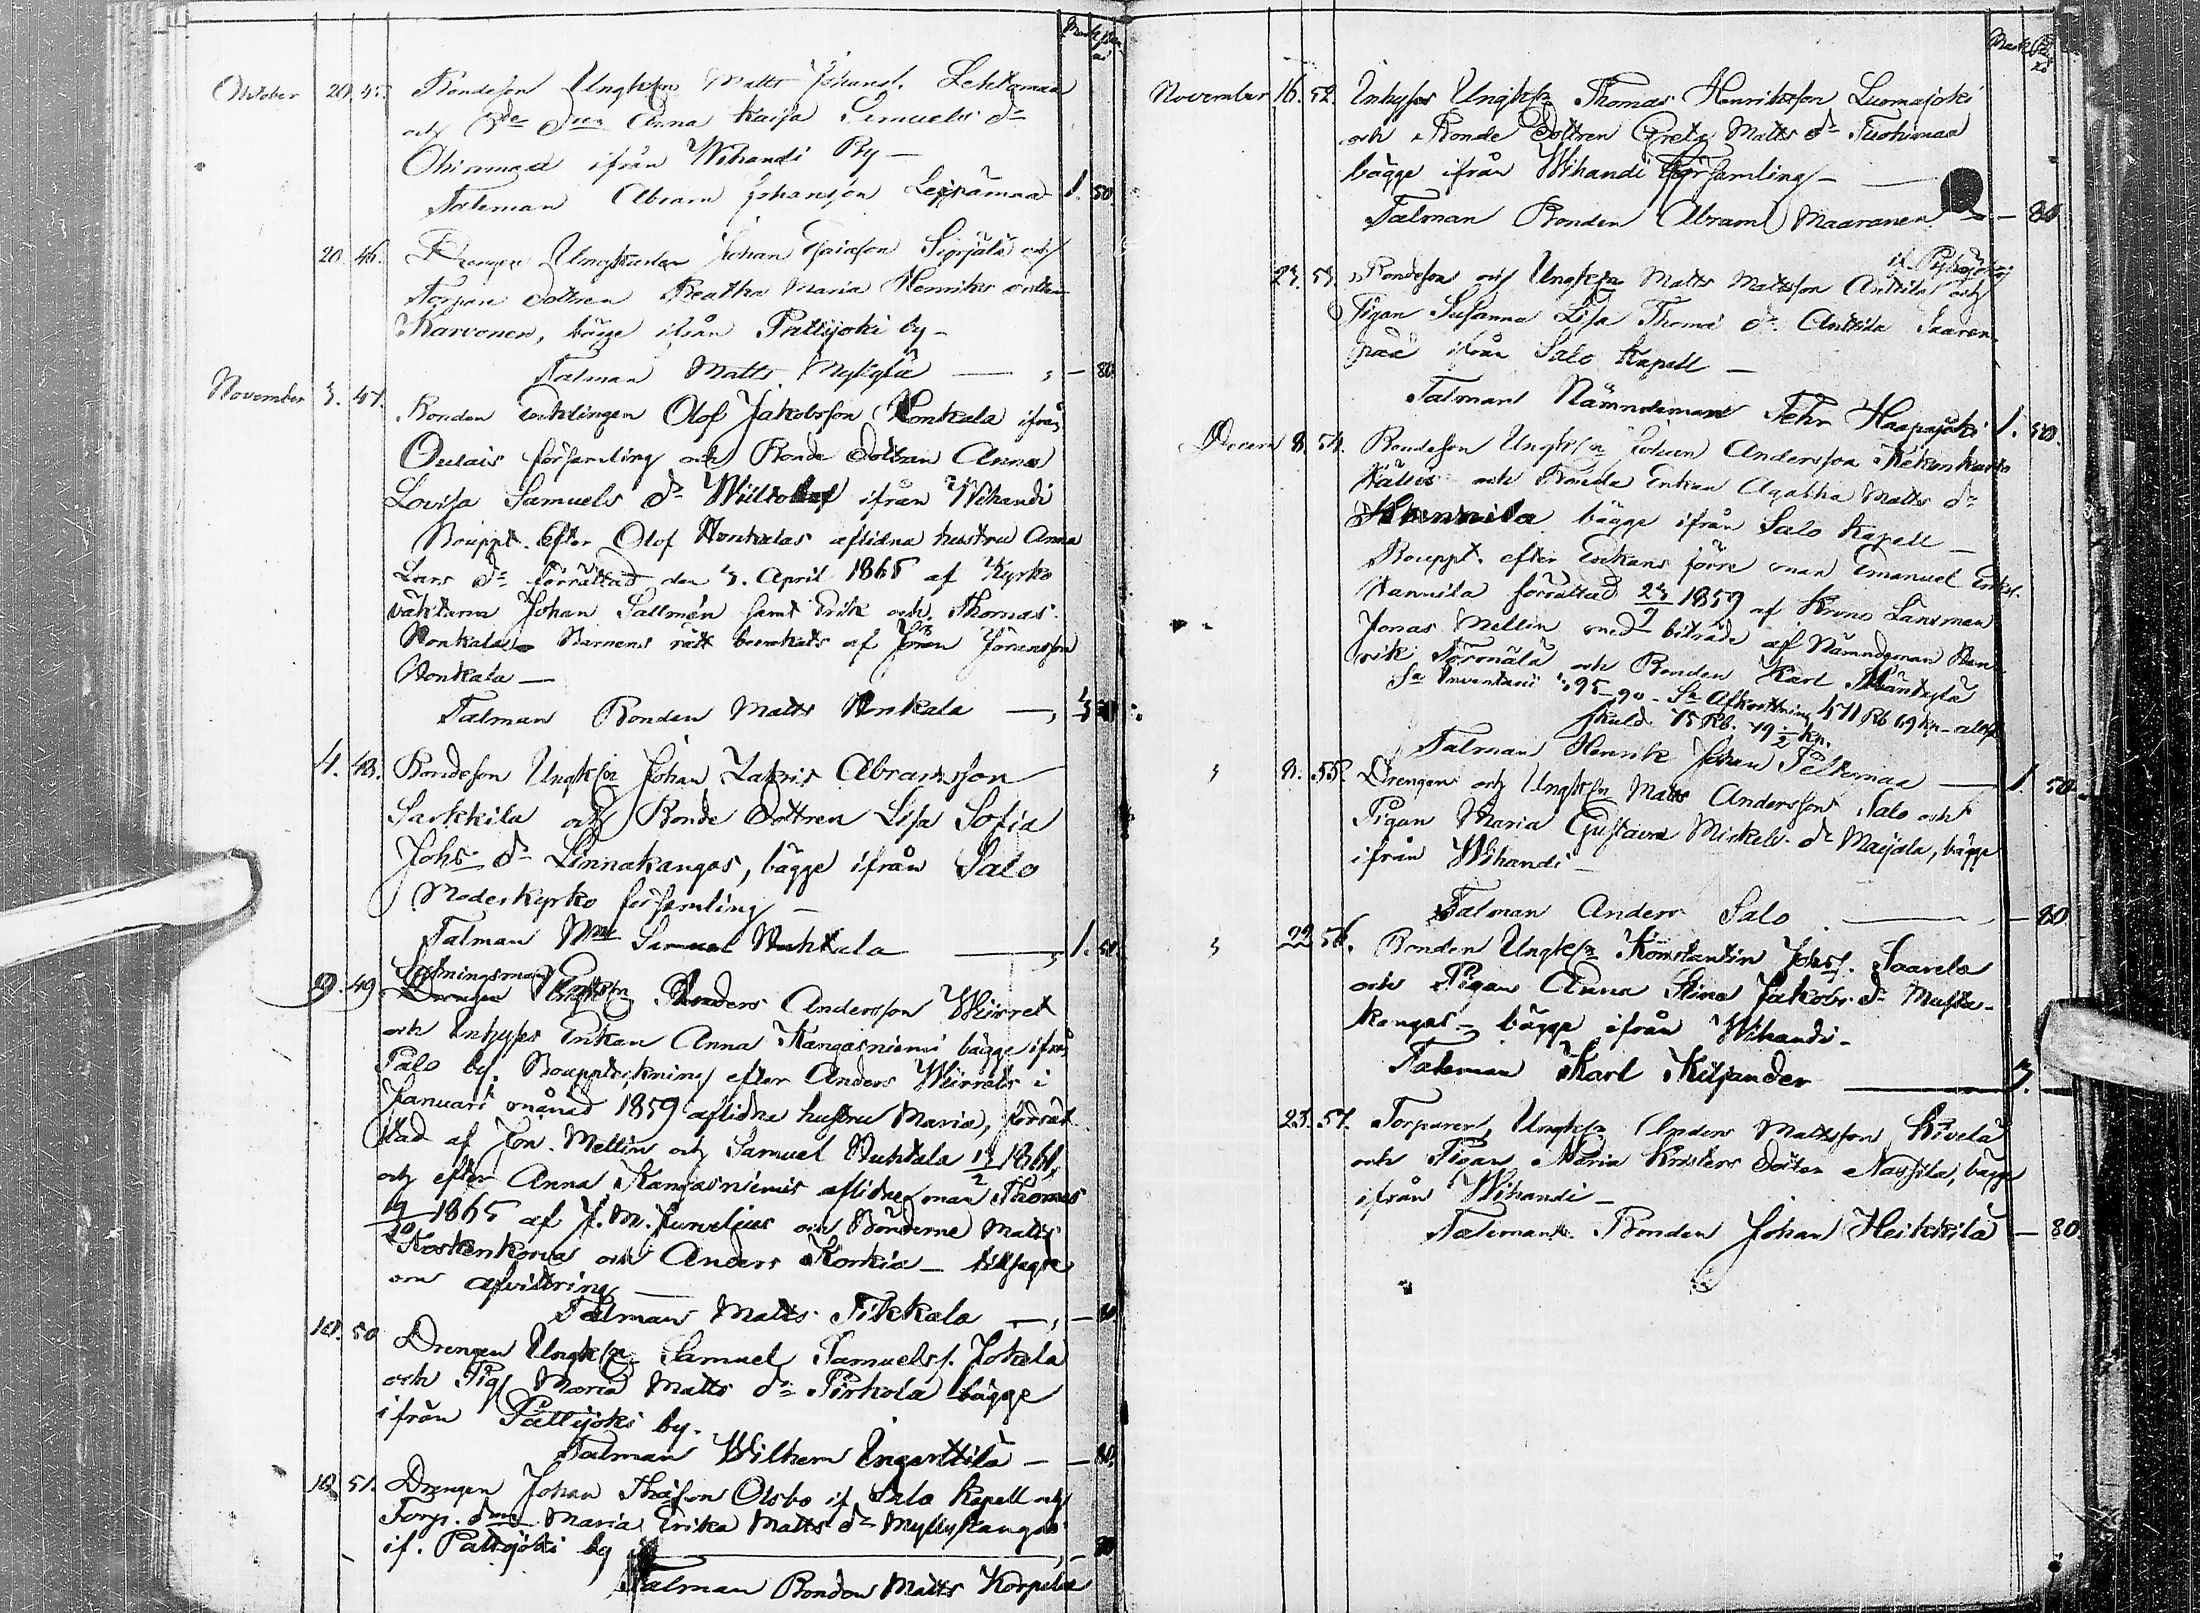 Mark pen
October 20. 45. Bondeson Ungk<u>sn</u> Matts Johans/. Lehtamaa
och B<u>de</u> d<u>tren</u> Anna Kaisa Simuels d<u>r</u>
Ohinmaa ifrån Wihandi By —
Taleman Abram Johansson Leppämaa 1. 50
20. 46. Drengen Ungkarlen Johan Isaksson Sigijälä och
Torpare dottren Beatha Maria Henriks dotter
Karvonen, bägge ifrån Pattijoki by —
Talman Matts Mylylä — , — 80
November 3. 47. Bonden Enklingen Olof Jakobsson Honkala ifrån
Oulais församling och Bonde Dottran Anna
Lovisa Samuels d<u>r</u> ifrån Wihandi
Bouppt. Efter Olof Honkalas aflidna hustru Anna
Lars d<u>r</u> förrättad den 3. April 1865 af Kyrko
väktarn Johan Sallmén samt Erik och Thomas
Honkala — Barnens rätt bevakats af Jöran Jöransson
Honkala —
Talman Bonden Matts Honkala — ,
4. 48. Bondeson Ungk<u>sn</u> Johan Zakris Abramsson
Sarkkila och Bonde Dottren Lisa Sofia
Joh<u>s</u> d<u>r</u> Linnakangas, bägge ifrån Salo
Moderkyrko församling —
Talman Samuel Huhtala — , 1. 50.
9. 49. Lösningsman
Drengen Anders Andersson Wiirret
och Inhyses Enkan Anna Kangasniemi bägge ifrån
Palo by. Boupptekning efter Anders Wiirrets i
Januari månad 1859 aflidna hustru Maria, förrät
tad af Jon. Mellin och Samuel Huhtala 13/2 1861,
och efter Anna Kangasniemis aflidne man Thomas
19/10 1865 af J. M. Junelius och Bönderne Matts
Koskenkorva och Anders Korkia — tillsagde
om afvittring —
Talman Matts Tikkala — , — 80
10. 50. Drengen Ungk<u>sn</u> Samuel Samuels/. Jokela
och Pig. Maria Matts d<u>r</u> Pirkola bägge
ifrån Pattijoki by.
Talman Wilhem Ingerttilä — — 80.
10. 51. Drengen Johan Olsbo if. Salo Kapell och
Torp. d<u>tren</u> Maria Erika Matts d<u>r</u> Myllykangas
if. Pattijoki by — , — 80
Talman Bonden Matts Korpela
Mark
November 16. 52. Inhyses Ungk<u>sn</u> Thomas Henriksson Luomajoki
och Bonde Dottren Greta Matts d<u>r</u> Tuohimaa
bägge ifrån Wihandi Församling — —
Talman Bonden Abram Maaranen — — 80
if. Pyhäjoki
23. 53. Bondeson och Ungk<u>sn</u> Matts Mattsson Anttila och
Pigan Susanna Lisa Thome d<u>r</u> Anttila Saaren
pää ifrån Salo Kapell —
Talman Nämndeman Pehr Haapajoki 1. 50.
Decem 8. 54. Bondeson Ungk<u>sn</u> Johan Andersson Kekonkorvo
Kälviä och Bonde Enkan Agatha Matts d<u>r</u>
Hannila bägge ifrån Salo Kapell —
Bouppt. efter Enkans förre man Emanuel
Hannila förrättad 23/7 1859 af Krono Länsman
Jonas Mellin med biträde af Nämndeman Hen
rik Törmälä och Bonden Karl Mäntylä
S<u>a</u> Inventarii 595–90 – S<u>a</u> Afkortning 471 Rb 69 kp –
skuld 75 Rb. 79 1/2 kp.
Talman Henrik Johan Peltomaa — 1. 50.
, 8. 55. Drengen och Ungk<u>sn</u> Matts Andersson Salo och
Pigan Maria Gustava Mickels d<u>r</u> Maijala, bägge
ifrån Wihandi —
Talman Anders Salo — — 80
, 22. 56. Bonden Ungk<u>sn</u> Konstantin Johs/. Saarela
och Pigan Anna Stina Jakobs d<u>r</u> Musta-
kangas — bägge ifrån Wihandi —
Taleman Karl Kiljander — 3. —
23. 57. Torparen, Ungk<u>sn</u> Anders Mattsson Kivelä
och Pigan Maria Kristers Dotter Nassila, bägge
ifrån Wihandi —
Taleman Bonden Johan Heikkilä — 80